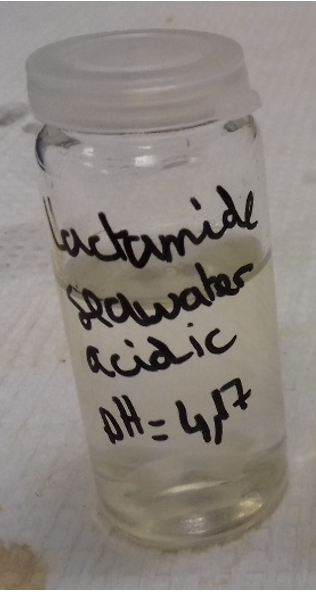 Lactamide
seawater
acidic
pH = 4,17